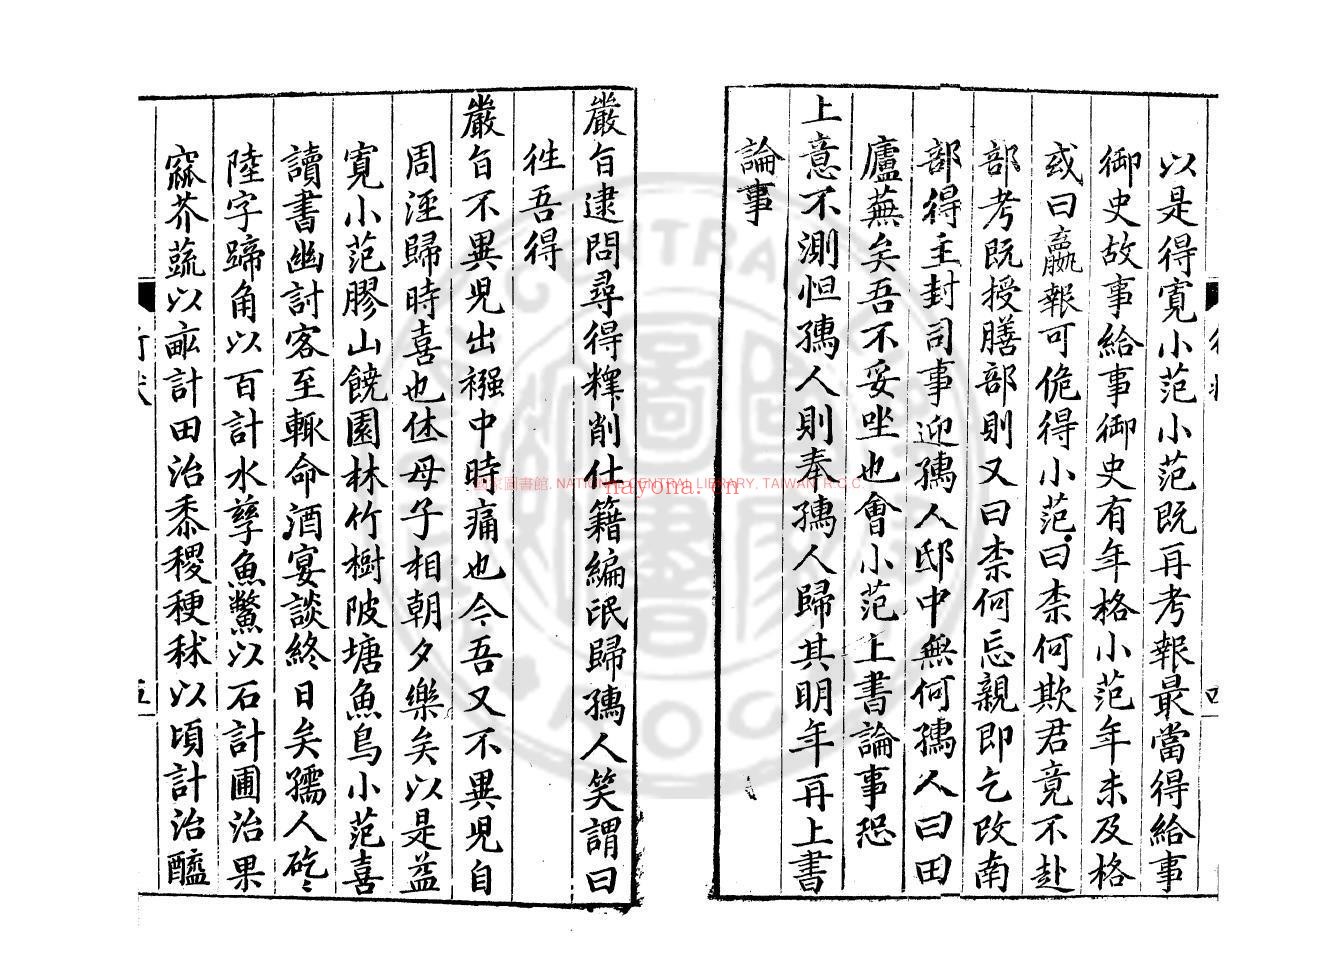 以是得寛小范小范既再考報最當得給事
御史故事給事御史有年格小范年未及格
或曰贏報可佹得小范曰柰何欺君竟不赴
部考既授膳部則又曰柰何忘親即乞改南
部得主封司事迎孺人邸中無何孺人曰田
廬蕪矣吾不妥坐也會小范上書論事恐
上意不測怛孺人則奉孺人歸其明年再上書
論事
嚴旨逮問尋得釋削仕籍編氓歸孺人笑謂曰
徃吾得
嚴旨不異兒出襁中時痛也今吾又不異兒自
周涇歸時喜也㤓母子相朝夕樂矣以是益
寛小范膠山饒園林竹樹陂塘魚鳥小范喜
讀書幽討客至輒命酒宴談終日矣孺人矻矻
陸字蹄角以百計水孳魚鱉以石計圃治果
窳芥蔬以畝計田治黍稷稉秫以頃計治醯
國家圖書館, NATIONAL CENTRAL LIBRARY, TAIWAN R.O.C.
nayona.cn